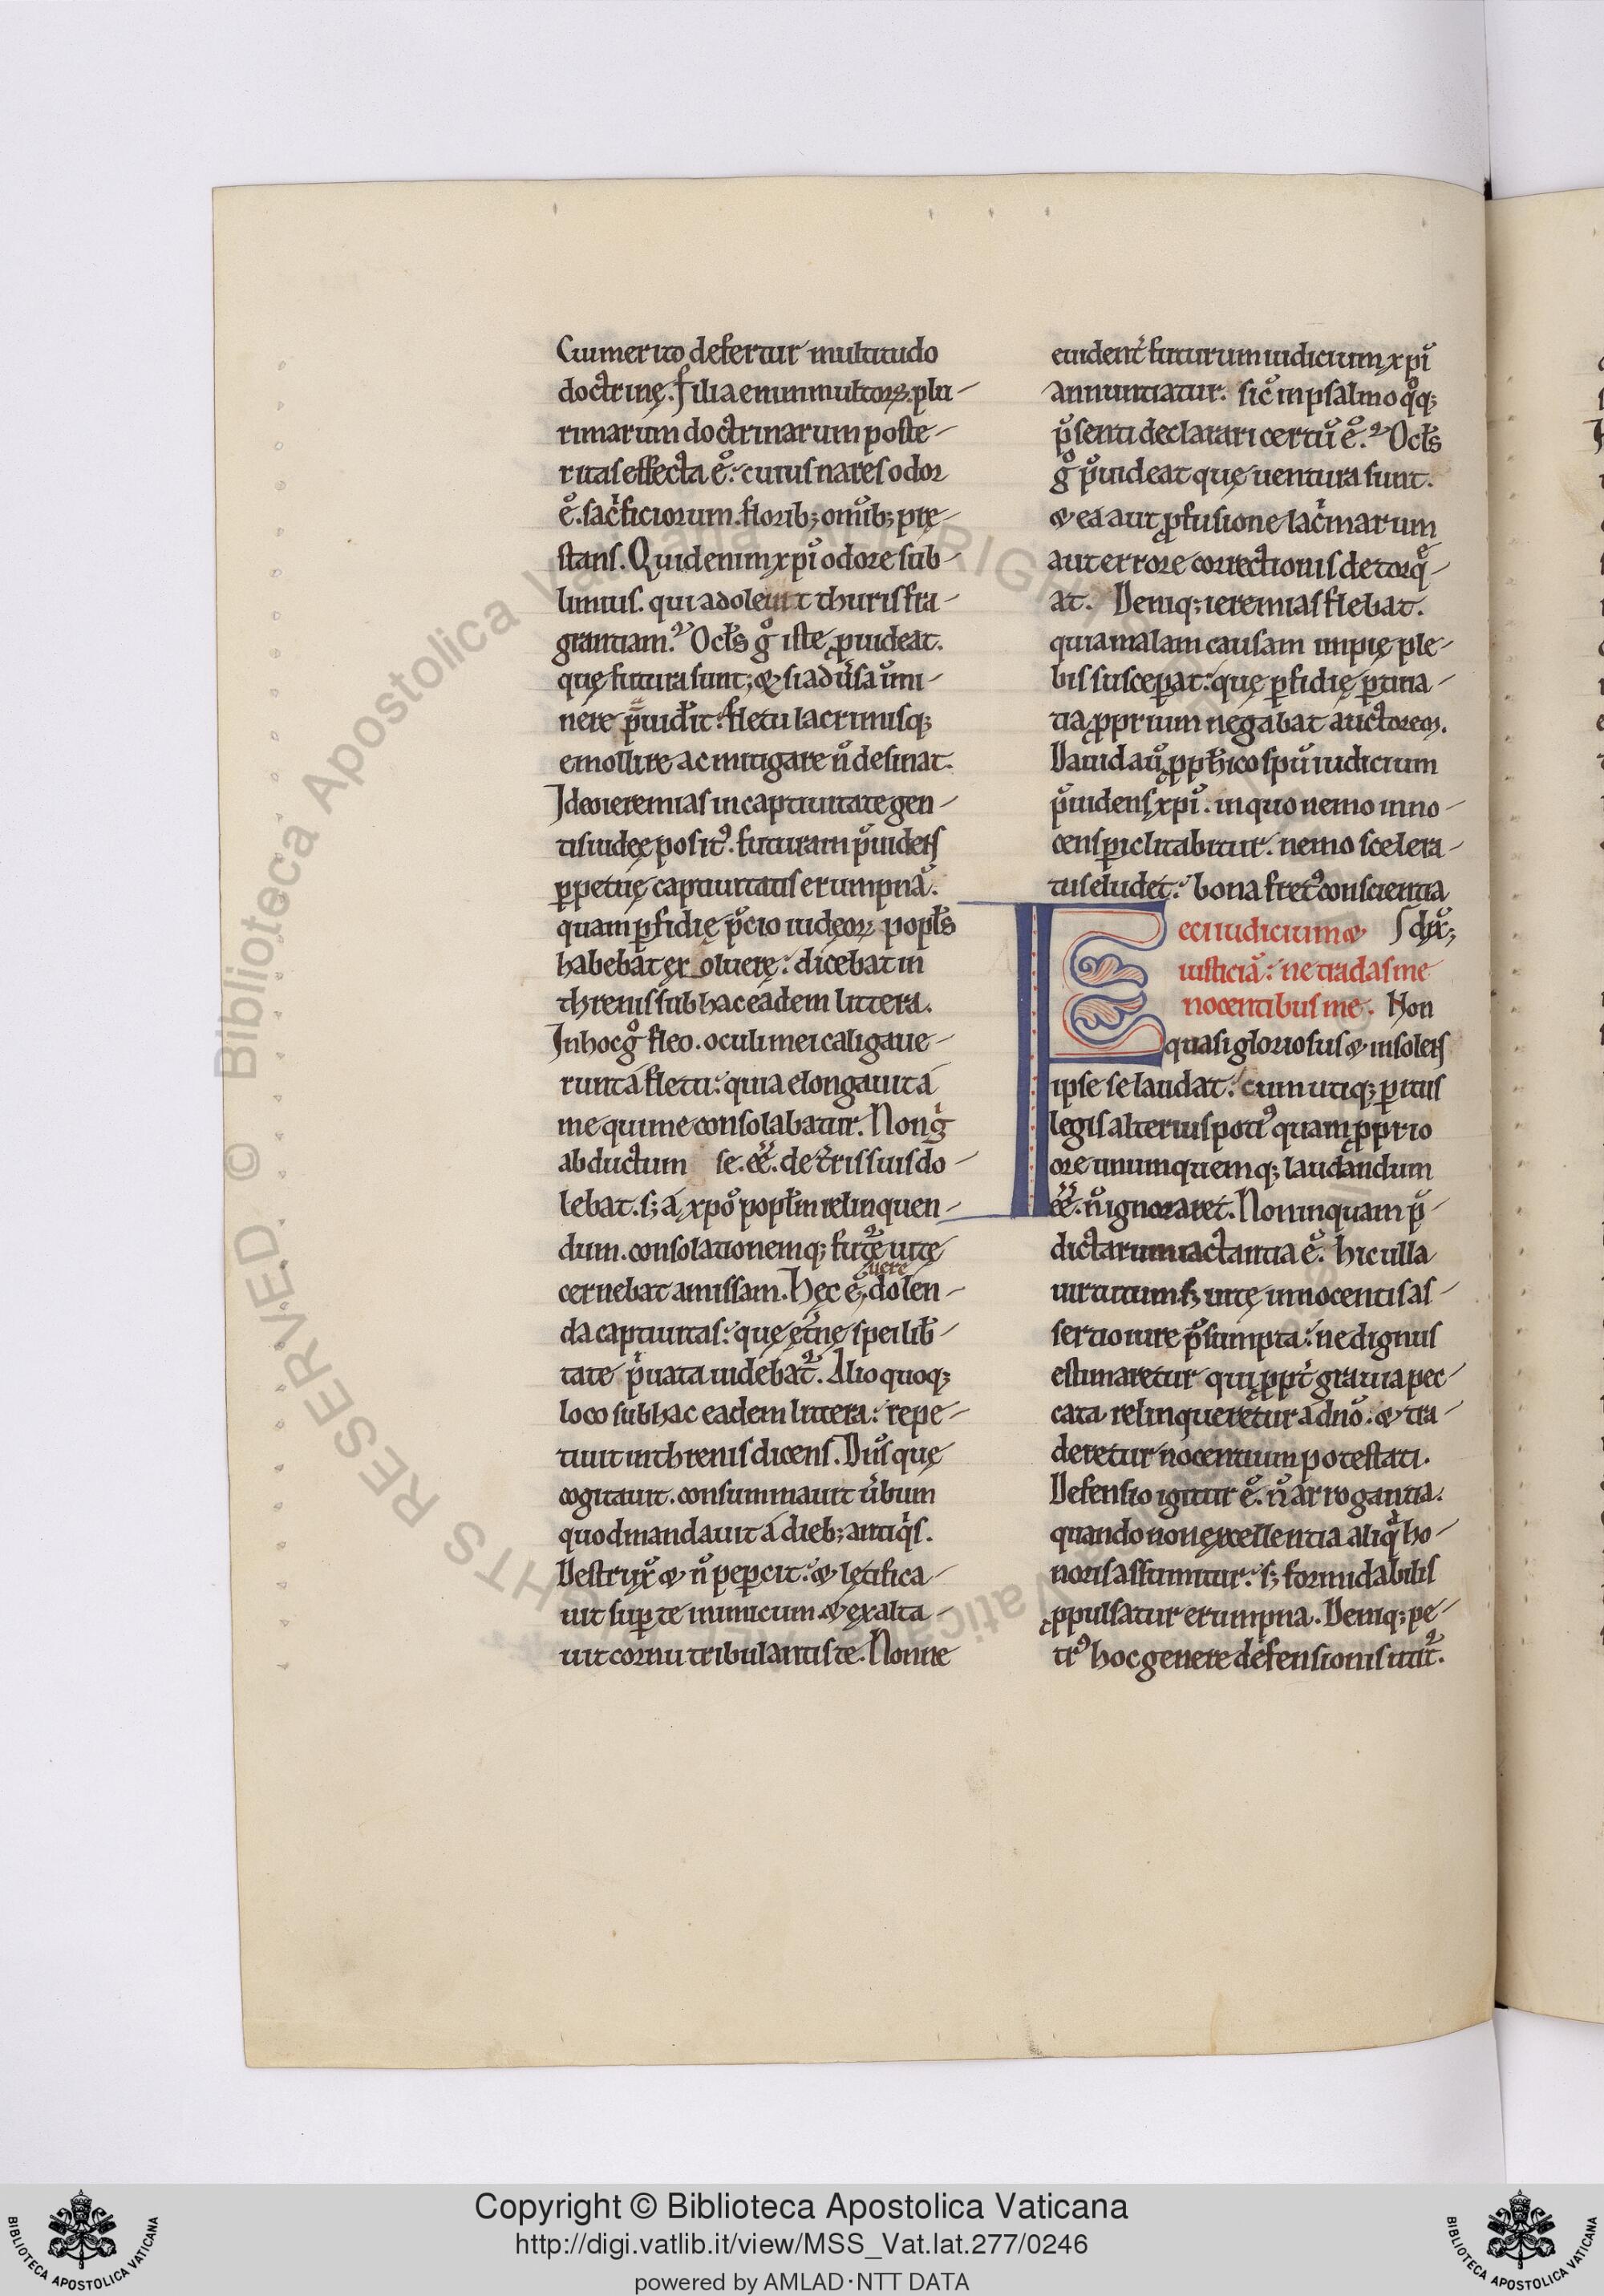 Cui merito defertur multitudo
doctrinę. filia enim multoꝝ. plu-
rimarum doctrinarum poste-
ritas effecta ē. cuius nares odor
ē. sac̍ficiorum. florib; om̅ib; prę-
stans. Quid enim xp̅i odore sub-
limius. qui adoleuit thuris fra-
grantiam? Ocl̅s g̊ iste ꝓuideat.
quę futura sunt; & si adu̅sa im̅i-
nere p̅uid̅it: fletu lacrimisq;
emollire ac mitigare n̅ desinat.
Ideo ieremias in captiuitate gen-
tis iudęę posit᷒. futuram p̅uidens
ꝑpetuę captiuitatis erumpna̅.
quam ꝑfidię p̅cio iudęoꝝ popl̅s
habebat exoluere: dicebat in
threnis sub hac eadem littera.
In hoc g̊ fleo. oculi mei caligaue-
runt á fletu: quia elongauit á
me qui me consolabatur. Non g̍
abductum se. ee̅. de t̅ris suis do-
lebat. s; á xp̅o popl̅m relinquen-
dum. consolationemq; fut᷑e uitę
uere
cernebat amissam. Hęc ē. dolen-
da captiuitas: quę et̅nę spei lib̅-
tate p̍uata uidebat᷑. Alio quoq;
loco sub hac eadem littera: repe-
tiuit in threnis dicens. Dn̅s quę
cogitauit. consummauit u̅bum
quod mandauit á dieb; antiq̍s.
Destrux̅ & n̅ peꝑcit: & lętifica-
uit suꝑ te inimicum. & exalta-
uit cornu tribulantis te. Nonne
euident̅ futurum iudicium xp̅i
annuntiatur. sic̅ in psalmo q̊q;
p̅senti declarari certu̅ ē? Ocl̅s
g̊ p̅uideat quę uentura sunt.
& ea aut ꝓfusione lac̍marum
aut errore correctionis detorq̅-
at. Deniq; ieremias flebat.
quia malam causam impię ple-
bis susceꝑat: quę ꝑfidię ꝑtina-
tia ꝓprium negabat auctorem.
Dauid au̅ ꝓph̅ico spu̅ iudicium
p̅uidens xp̅i. in quo nemo inno-
cens ꝑiclitabitur. nemo scelera-
tus eludet: bona fret᷒ conscientia
Feci iudicium & s dix̅;
iusticia̅: ne tradas me
nocentibus me. Non
quasi gloriosus & insolens
ipse se laudat: cum utiq; ꝑitus
legis alterius poti᷒ quam ꝓprio
ore unumquemq; laudandum
ee̅. n̅ ignoraret. Non inquam p̅-
dictarum iactantia ē. hic ulla
uirtutum. s; uitę innocentis as-
sertio iure p̅sumpta: ne dignus
estimaretur qui ꝓpt̅ grauia pec-
cata relinqueretur á dn̅o: & tra-
deretur nocentium potestati.
Defensio igitur ē. n̅ arrogantia.
quando non excellentia aliq̍ ho-
noris assumitur: s; formidabilis
ꝓpulsatur erumpna. Deniq; pe-
tr᷒ hoc genere defensionis utit᷑.
Copyright © Biblioteca Apostolica Vaticana
http://digi.vatlib.it/view/MSS_Vat.lat.277/0246
powered by AMLAD·NTT DATA